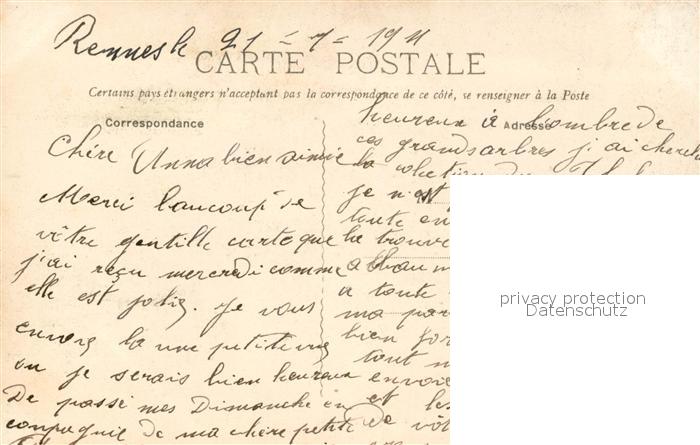 Rennes le 21 = 7 = 1911
CARTE POSTALE
Certains pays étrangers n'acceptant pas la correspondance de ce côté, se renseigner à la Poste
Correspondance
Chère Anna bien aimée
Merci beaucoup de
vôtre gentille carte que
j'ai reçu mercredi comme
elle est jolie. Je vous
envoie la vue
ou je serais bien heureux
De passé mes Dimanche en
compagnie de ma chère petite
Adresse
heureux à l'ombre de
ces grands arbres j'ai cherché
la
je n'est
toute en
la trouve
a
a toute
ma
bien for
tout
envoie
et les
De vôt
privacy protection
Datenschutz